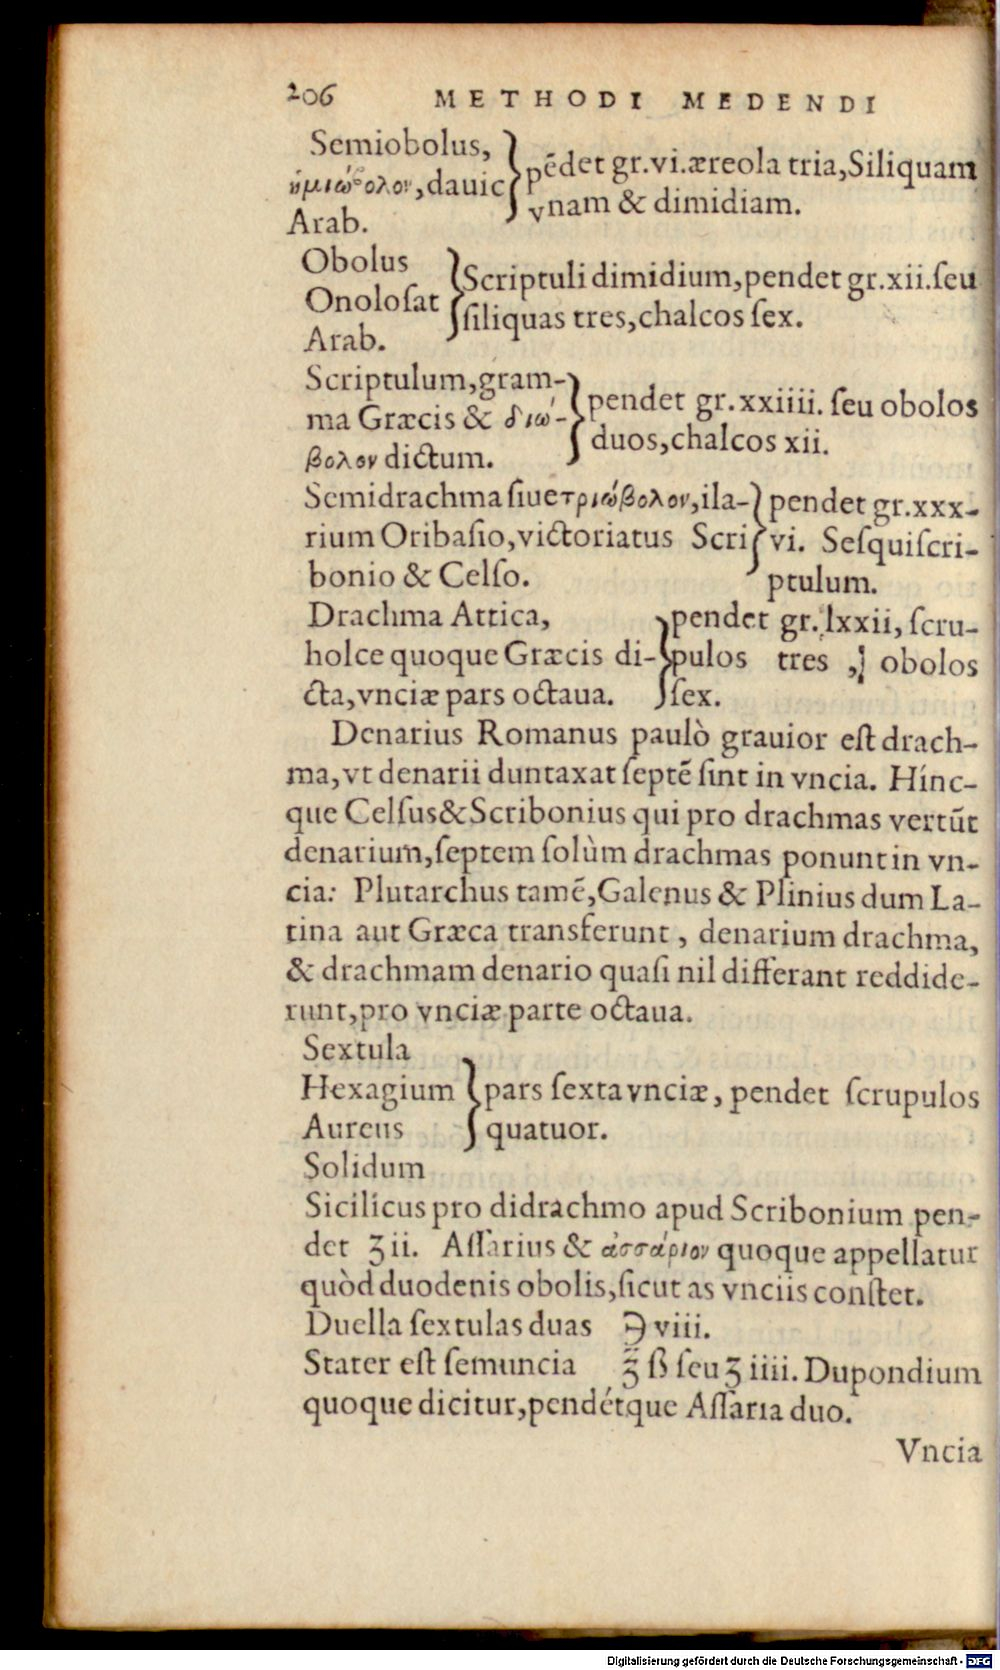 206 METHODI MEDENDI
Semiobolus,
ἡμιώβολον, dauic
Arab.
pēdet gr.vi.æreola tria, Siliquam
vnam & dimidiam.
Obolus
Onoloſat
Arab.
Scriptuli dimidium, pendet gr.xii.ſeu
ſiliquas tres, chalcos ſex.
Scriptulum, gram-
ma Græcis & διώ-
βολον dictum.
pendet gr.xxiiii. ſeu obolos
duos, chalcos xii.
Semidrachma ſiue τριώβολον, ila-
rium Oribaſio, victoriatus Scri
bonio & Celſo.
pendet gr.xxx-
vi. Seſquiſcri-
ptulum.
Drachma Attica,
holce quoque Græcis di-
cta, vnciæ pars octaua.
pendet gr. lxxii, ſcru-
pulos tres, obolos
ſex.
Denarius Romanus paulò grauior eſt drach-
ma, vt denarii duntaxat ſeptē ſint in vncia. Hínc-
que Celſus & Scribonius qui pro drachmas vertūt
denarium, ſeptem ſolùm drachmas ponunt in vn-
cia: Plutarchus tamē, Galenus & Plinius dum La-
tina aut Græca transferunt, denarium drachma,
& drachmam denario quaſi nil differant reddide-
runt, pro vnciæ parte octaua.
Sextula
Hexagium
Aureus
Solidum
pars ſexta vnciæ, pendet ſcrupulos
quatuor.
Sicilicus pro didrachmo apud Scribonium pen-
det ʒ ii. Aſſarius & ἀσσάριον quoque appellatur
quòd duodenis obolis, ſicut as vnciis conſtet.
Duella ſextulas duas ℈ viii.
Stater eſt ſemuncia ℥ ß ſeu ʒ iiii. Dupondium
quoque dicitur, pendétque Aſſaria duo.
Vncia
Digitalisierung gefördert durch die Deutsche Forschungsgemeinschaft - DFG